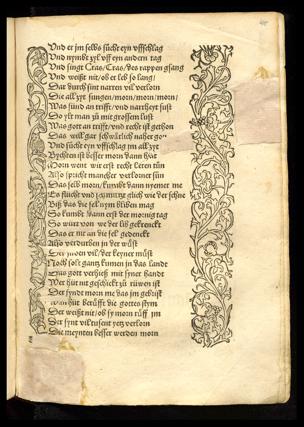 Und er jm selbs sůcht eyn uffschlag
Und nymbt zyl uff eyn andern tag
Und singt Cras / Cras / des rappen gsang
Und weißt nit / ob er leb so lang /
Dar durch sint narren vil verlorn
Die all zyt sungen / morn / morn / morn /
Was sünd an trifft / und narrheyt sust
So ylt man zů mit grossem lust
Was got an trifft / und recht ist gethon
Das will gar schwärlich naher gon
Und sůcht eyn uffschlag jm all zyt
Bychten ist besser morn dann hüt
Morn went wir erst recht leren tůn
Also spricht mancher verlorner sůn
Das selb morn / kumbt dann nyemer me
Es flücht und schmiltzt glich wie der schne
Biß das die sel nym bliben mag
So kumbt dann erst der mornig tag
So würt von we der lib gekrenckt
Das er nit an die sel gedenckt
Also verdurben in der wůst
Der Juden vil / der keyner můst
Noch solt gantz kumen in das landt
Das got verhieß mit syner handt
Wer hüt nit geschickt zů rüwen ist
Der fyndt morn me das jm gebrist
Wen hüt berüfft die gottes stym
Der weißt nit / ob sy morn rüff jm
Der synt vil tusent yetz verlorn
Die meynten besser werden morn